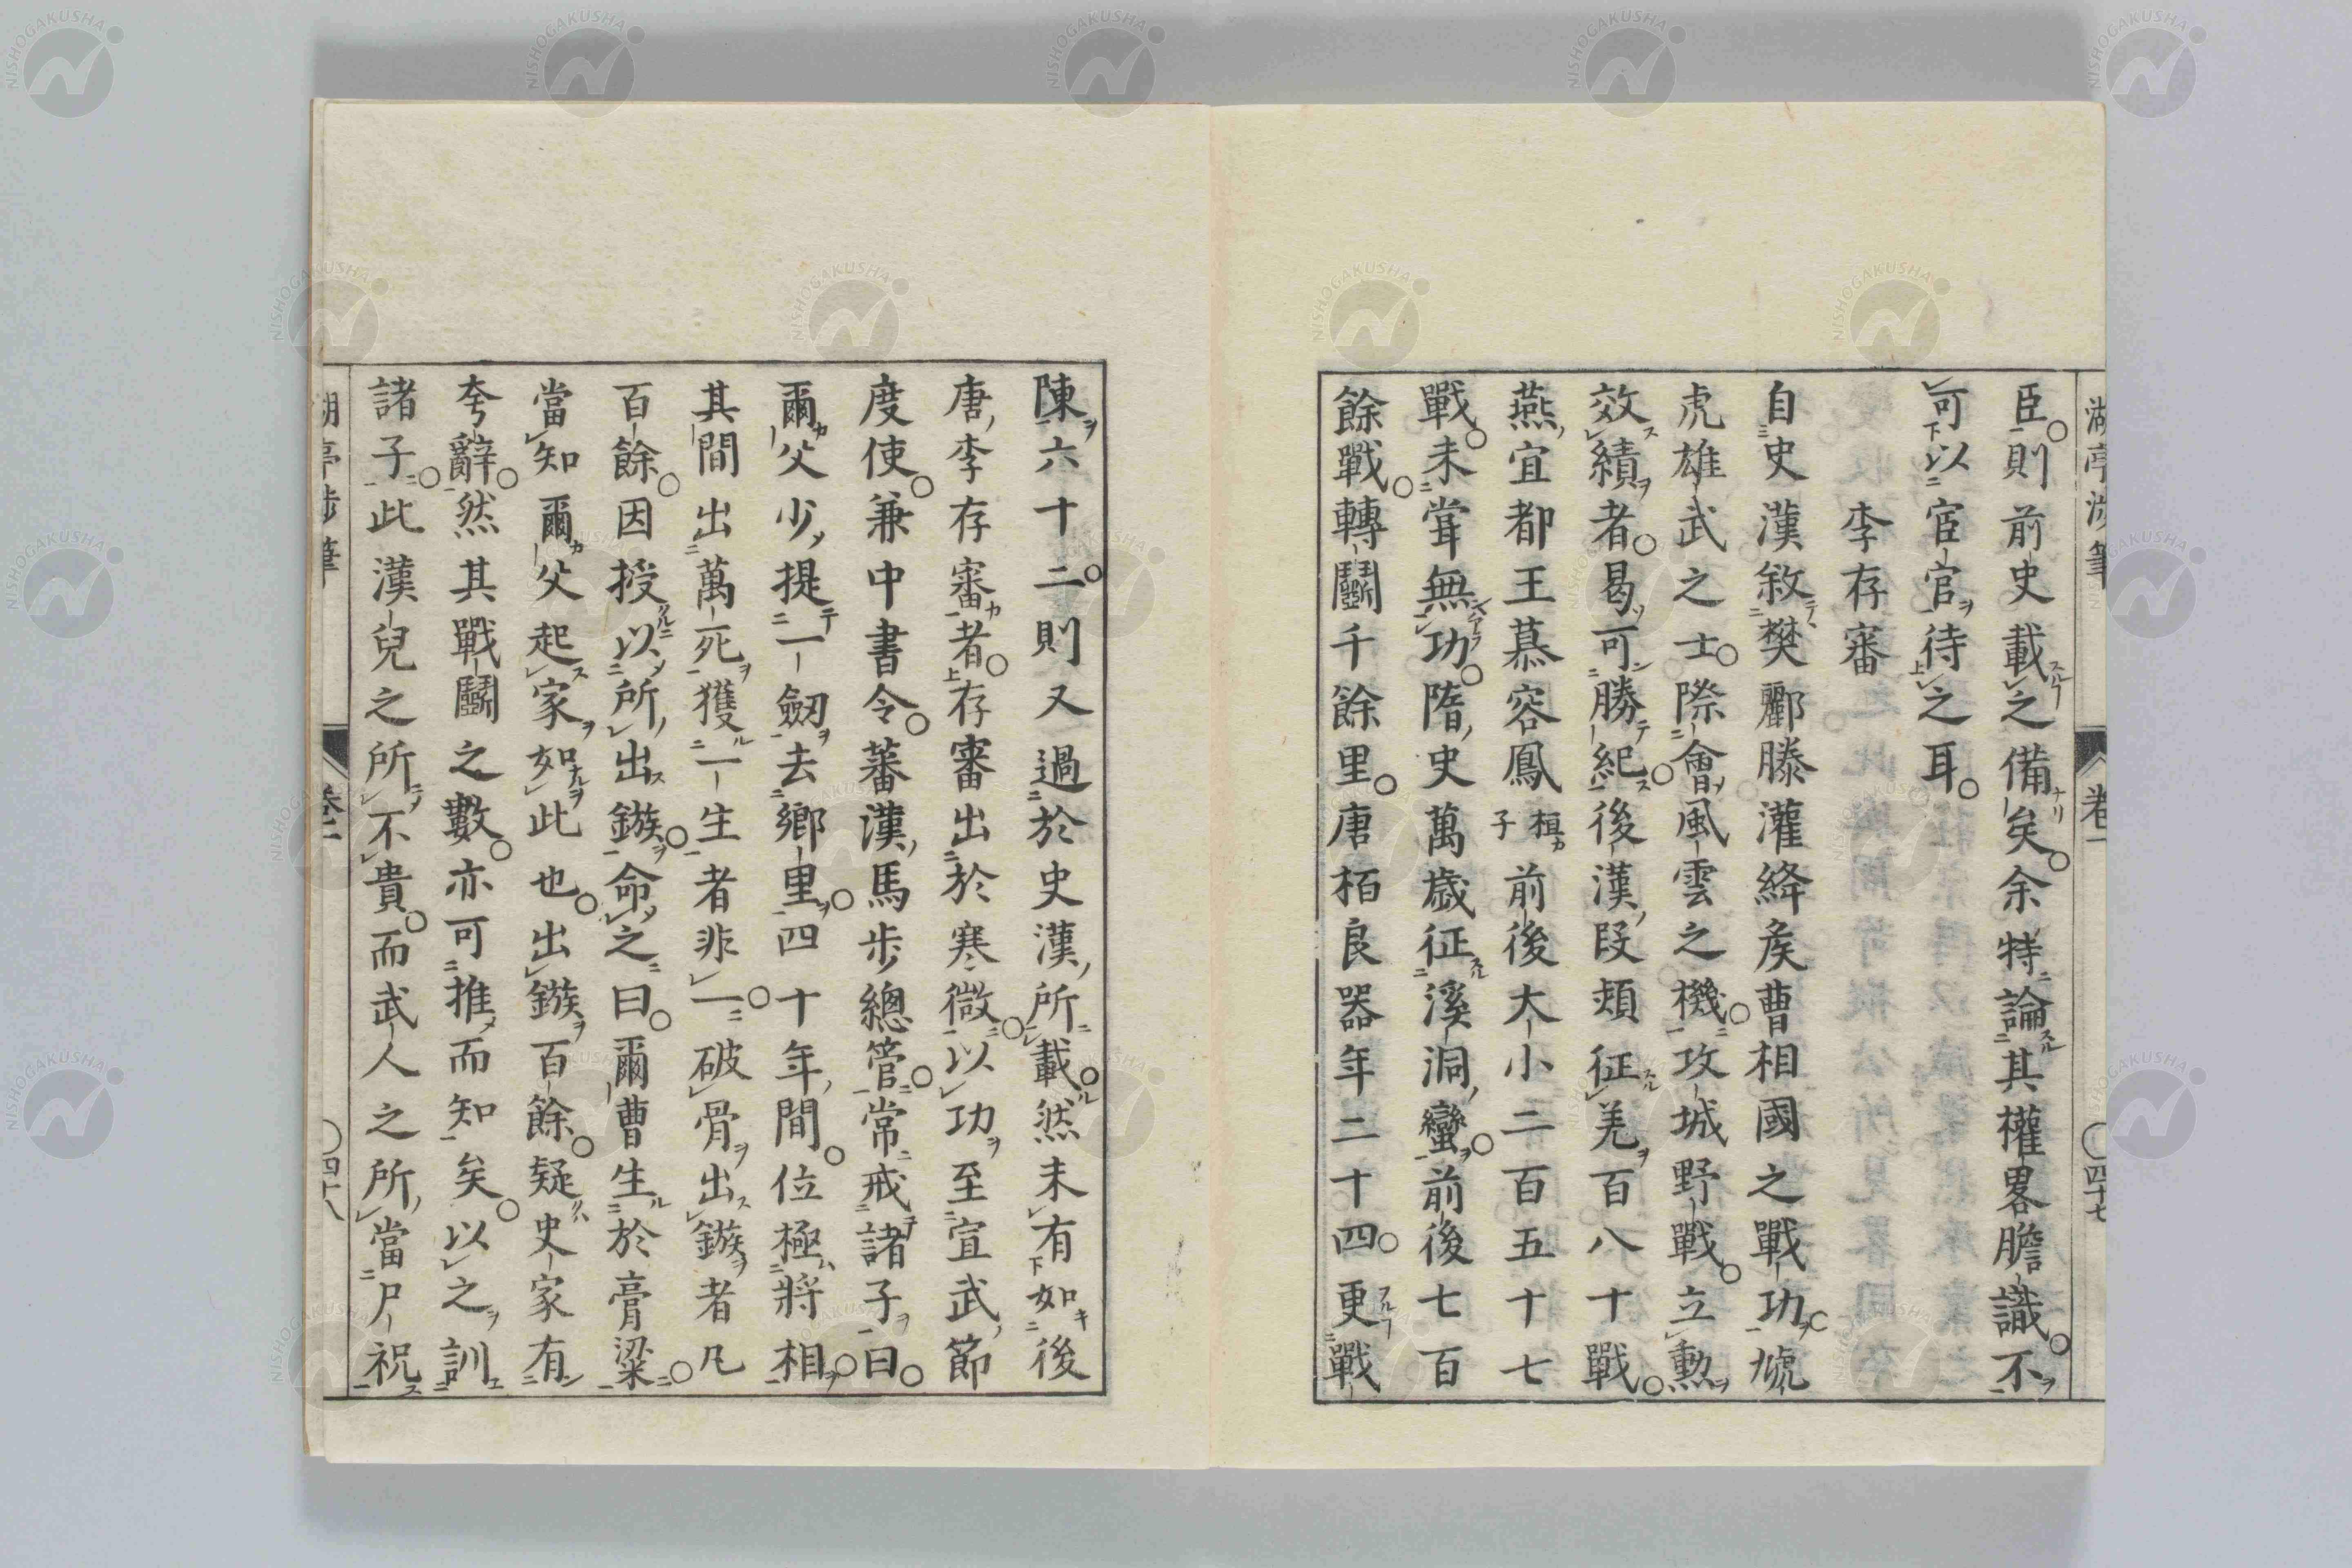 湖亭涉筆 卷一 〇四十七
臣。則前史載之備矣。余特論其權畧膽識。不
可以宦官待之耳。
李存審
自史漢敘樊酈滕灌絳矦曹相國之戰功。虓
虎雄武之士。際會風雲之機。攻城野戰。立勲
效績者。曷可勝紀。後漢段熲征羌百八十戰。
燕宜都王慕容鳳桓子前後大小二百五十七
戰。未甞無功。隋史萬歲征溪洞蠻。前後七百
餘戰。轉鬬千餘里。唐栢良器年二十四。更戰
陳六十二。則又過於史漢所載。然未有如後
唐李存審者。存審出於寒微。以功至宣武節
度使。兼中書令。蕃漢馬步總管。常戒諸子曰。
爾父少提一劔去鄉里。四十年間。位極將相。
其間出萬死獲一生者非一。破骨出鏃者凡
百餘。因授以所出鏃。命之曰。爾曹生於膏粱。
當知爾父起家如此也。出鏃百餘。疑史家有
夸辭。然其戰鬬之數。亦可推而知矣。以之訓
諸子。此漢兒之所不貴。而武人之所當尸祝
湖亭涉筆 卷一 〇四十八
NISHOGAKUSHA